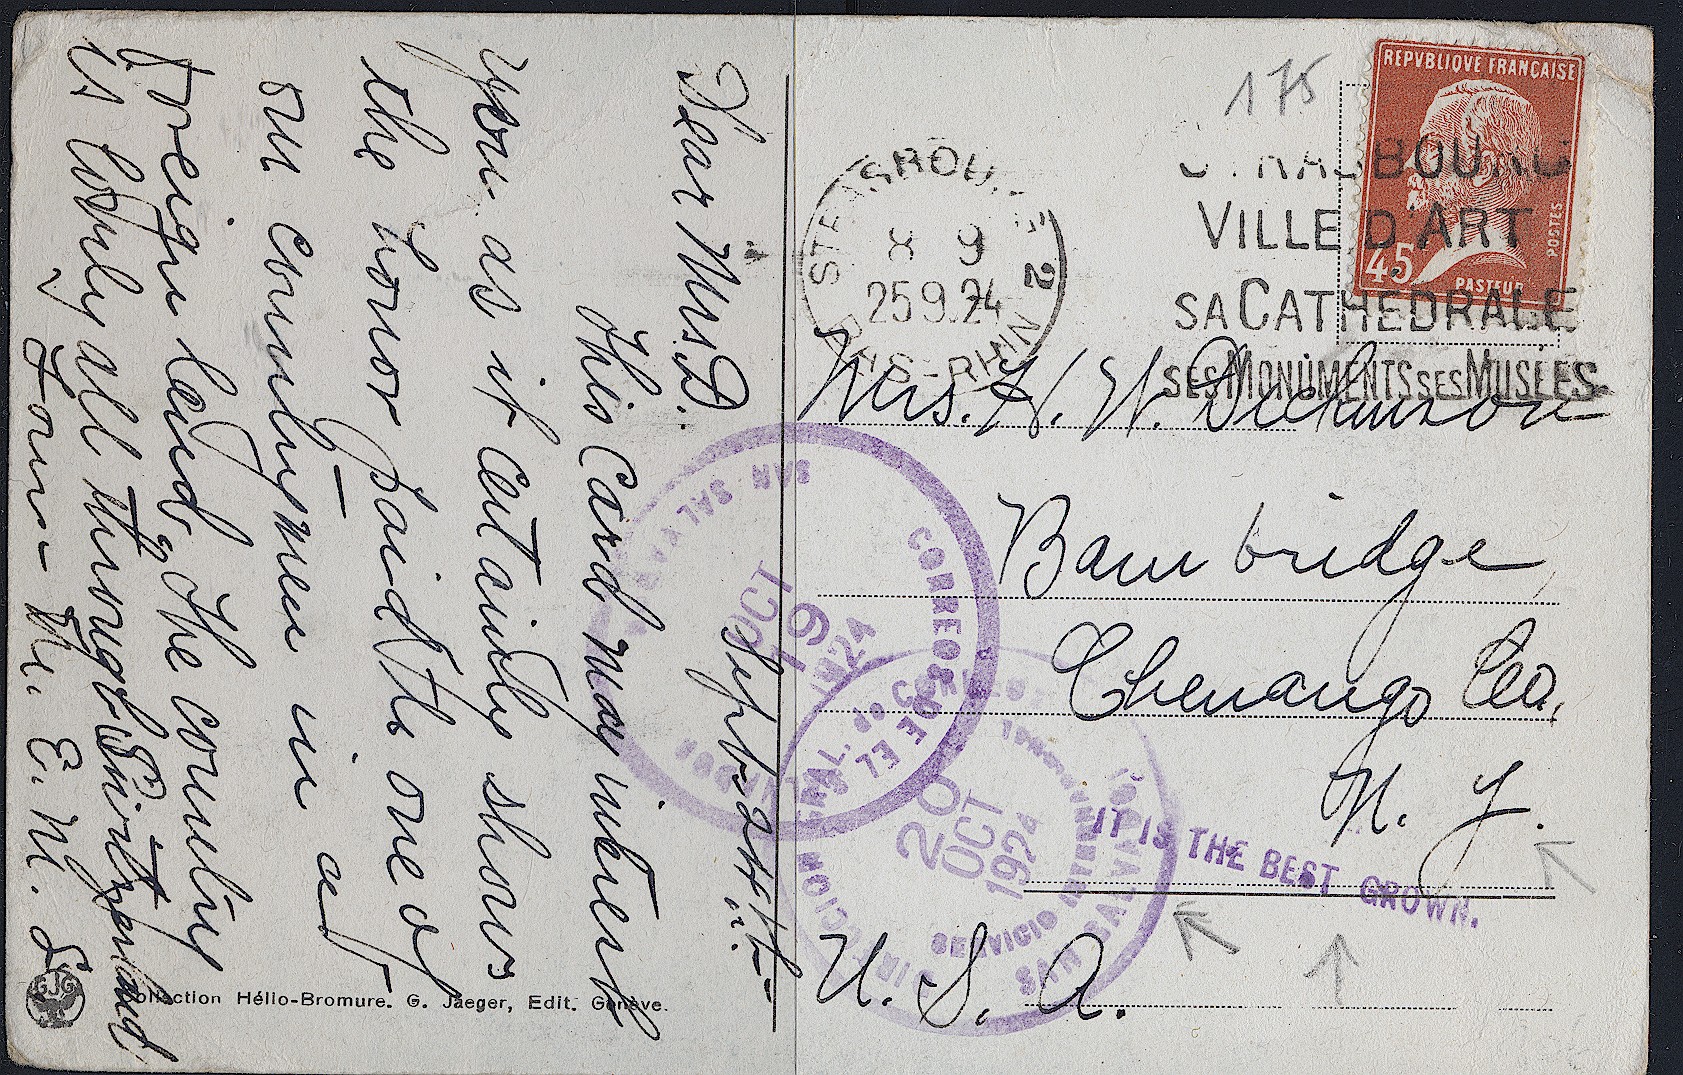 Sept. 24th
Dear Mrs. D.
This Card may interest
you as it certainly shows
the honor paid the one of
our countrymen in a
foreign land, the country
is lovely all through Switzerland
from H. E. M. S
Collection Hélio-Bromure. G. Jaeger, Edit. Genève.
GJG
175
REPVBLIQVE FRANÇAISE
45
POSTES
PASTEUR
STRASBOURG 2
8 9
25 9.24
BAS-RHIN
STRASBOURG
VILLE D'ART
SA CATHEDRALE
SES MONUMENTS SES MUSÉES
Mrs. H. W. Dickinson
Bainbridge,
Chenango Co.,
N. Y.
U. S. A.
CORREOS DE EL SALVADOR
SAN SALVADOR
OCT
19
1924
CORREOS
20
OCT
1924
SERVICIO INTERNACIONAL
SAN SALVADOR
IT IS THE BEST GROWN.